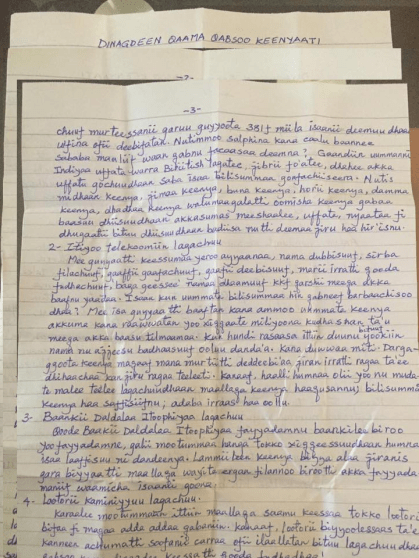 DINAGDEEN QAAMA QABSOO KEENYAATI
-2-
-3-
chuuf murteessanii garuu guyyoota 381f miila isaanii deemuu dhaa
uffina ofii deebifatan. Nutimmoo salphina kana caalu baannee
sababa maaliif waan gabnu facaasaa deemna? Gaandiin uummanni
Indiyaa uffata warra Biritish lagatee, jibrii fo'atee, dhahee akka
uffatu gochuudhaan saba isaa bilisummaa goonfachiiseera. Nutis
midhaan keenya, jimaa keenya, buna keenya, horii keenya, damma
keenya, dhadhaa keenya walumaagalatti oomisha keenya gabaa
baasuu dhiisuudhaan akkasumas meeshaalee, uffata, nyaataa fi
dhugaatii bituu dhiisuudhaan badiisa nutti deemaa jiru haa hir'isnu.
2- Itiyoo telekoomiin lagachuu
Mee guyyaatti keessumaa yeroo ayyaanaa, nama dubbisuuf, sirba
filachuuf, gaaffii gaafachuuf, gaafii deebisuuf, marii irratti qooda
fudhachuuf, baga geessee namaa dhaamuuf kkf qarshii meega akka
baafnu yaadaa. Isaan kun uummata bilisummaa hin qabneef barbaachisoo
dhaa? Mee isa guyyaatti baaftan kana ammoo ummata keenya
akkuma kana raawwatan yoo xiqqaate miliyoona kudha shan ta'u
meega akka baasu tilmaamaa. Kan hundi rasaasa ittiin duunu yookiin bituuf
nama nu ajjeesu badhaasuuf ooluu danda'a. Kana duuwwaa miti. Darga-
ggoota keenya magaarii mana murtiitti deddeebi'aa jiran irratti ragaa ta'ee
dhihaachaa kan jiru ragaa teeleeti. Kanaaf, haalli humnaa olii yoo nu muda-
te malee teelee lagachuudhaan maallaqa keenya haaqusannu; bilisummaa
keenya haa saffisiifnu; adaba irraas haa oollu.
3- Baankii Daldalaa Itoophiyaa lagachuu
Qoode Baankii Daldalaa Itoophiyaa fayyadamnu baankilee biroo
yoo fayyadamne, galii mootummaan hanga tokko xiqqeessuudhaan humna
isaa laaffisuu ni dandeenya. Lammiileen keenya biyya alaa jiranis
gara biyyaatti maallaqa wayita ergan filannoo birootti akka fayyada-
maniif waamicha isaanii goona.
4- Lootorii kaminiyyuu lagachuu.
Karaalee mootummaan ittiin maallaqa saamu keessaa tokko lootorii
biifaa fi maqaa adda addaa gabaniin. Kanaaf, lootorii biyyoolessaas ta'e
kanneen achumatti sarfanii carraa ofii ilaallatan bituu lagachuudhaan